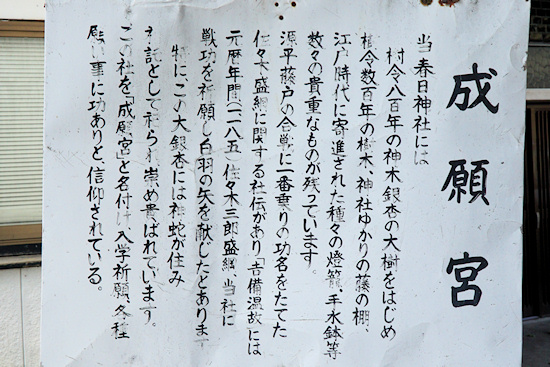 成願宮
当春日神社には
樹令八百年の神木銀杏の大樹をはじめ
樹令数百年の樹木、神社ゆかりの藤の棚、
江戸時代に寄進された種々の燈籠、手水鉢等
数々の貴重なものが残っています。
源平藤戸の合戦に一番乗りの功名をたてた
佐々木盛綱に関する社伝があり「吉備温故」には
元暦年間(一一八五)佐々木三郎盛綱、当社に
戦功を祈願し白羽の矢を献じたとあります
特に、この大銀杏には神蛇が住み
託として祀られ崇め貴ばれています。
この社を「成願宮」と名付け、入学祈願、各種
願い事に功ありと、信仰されている。